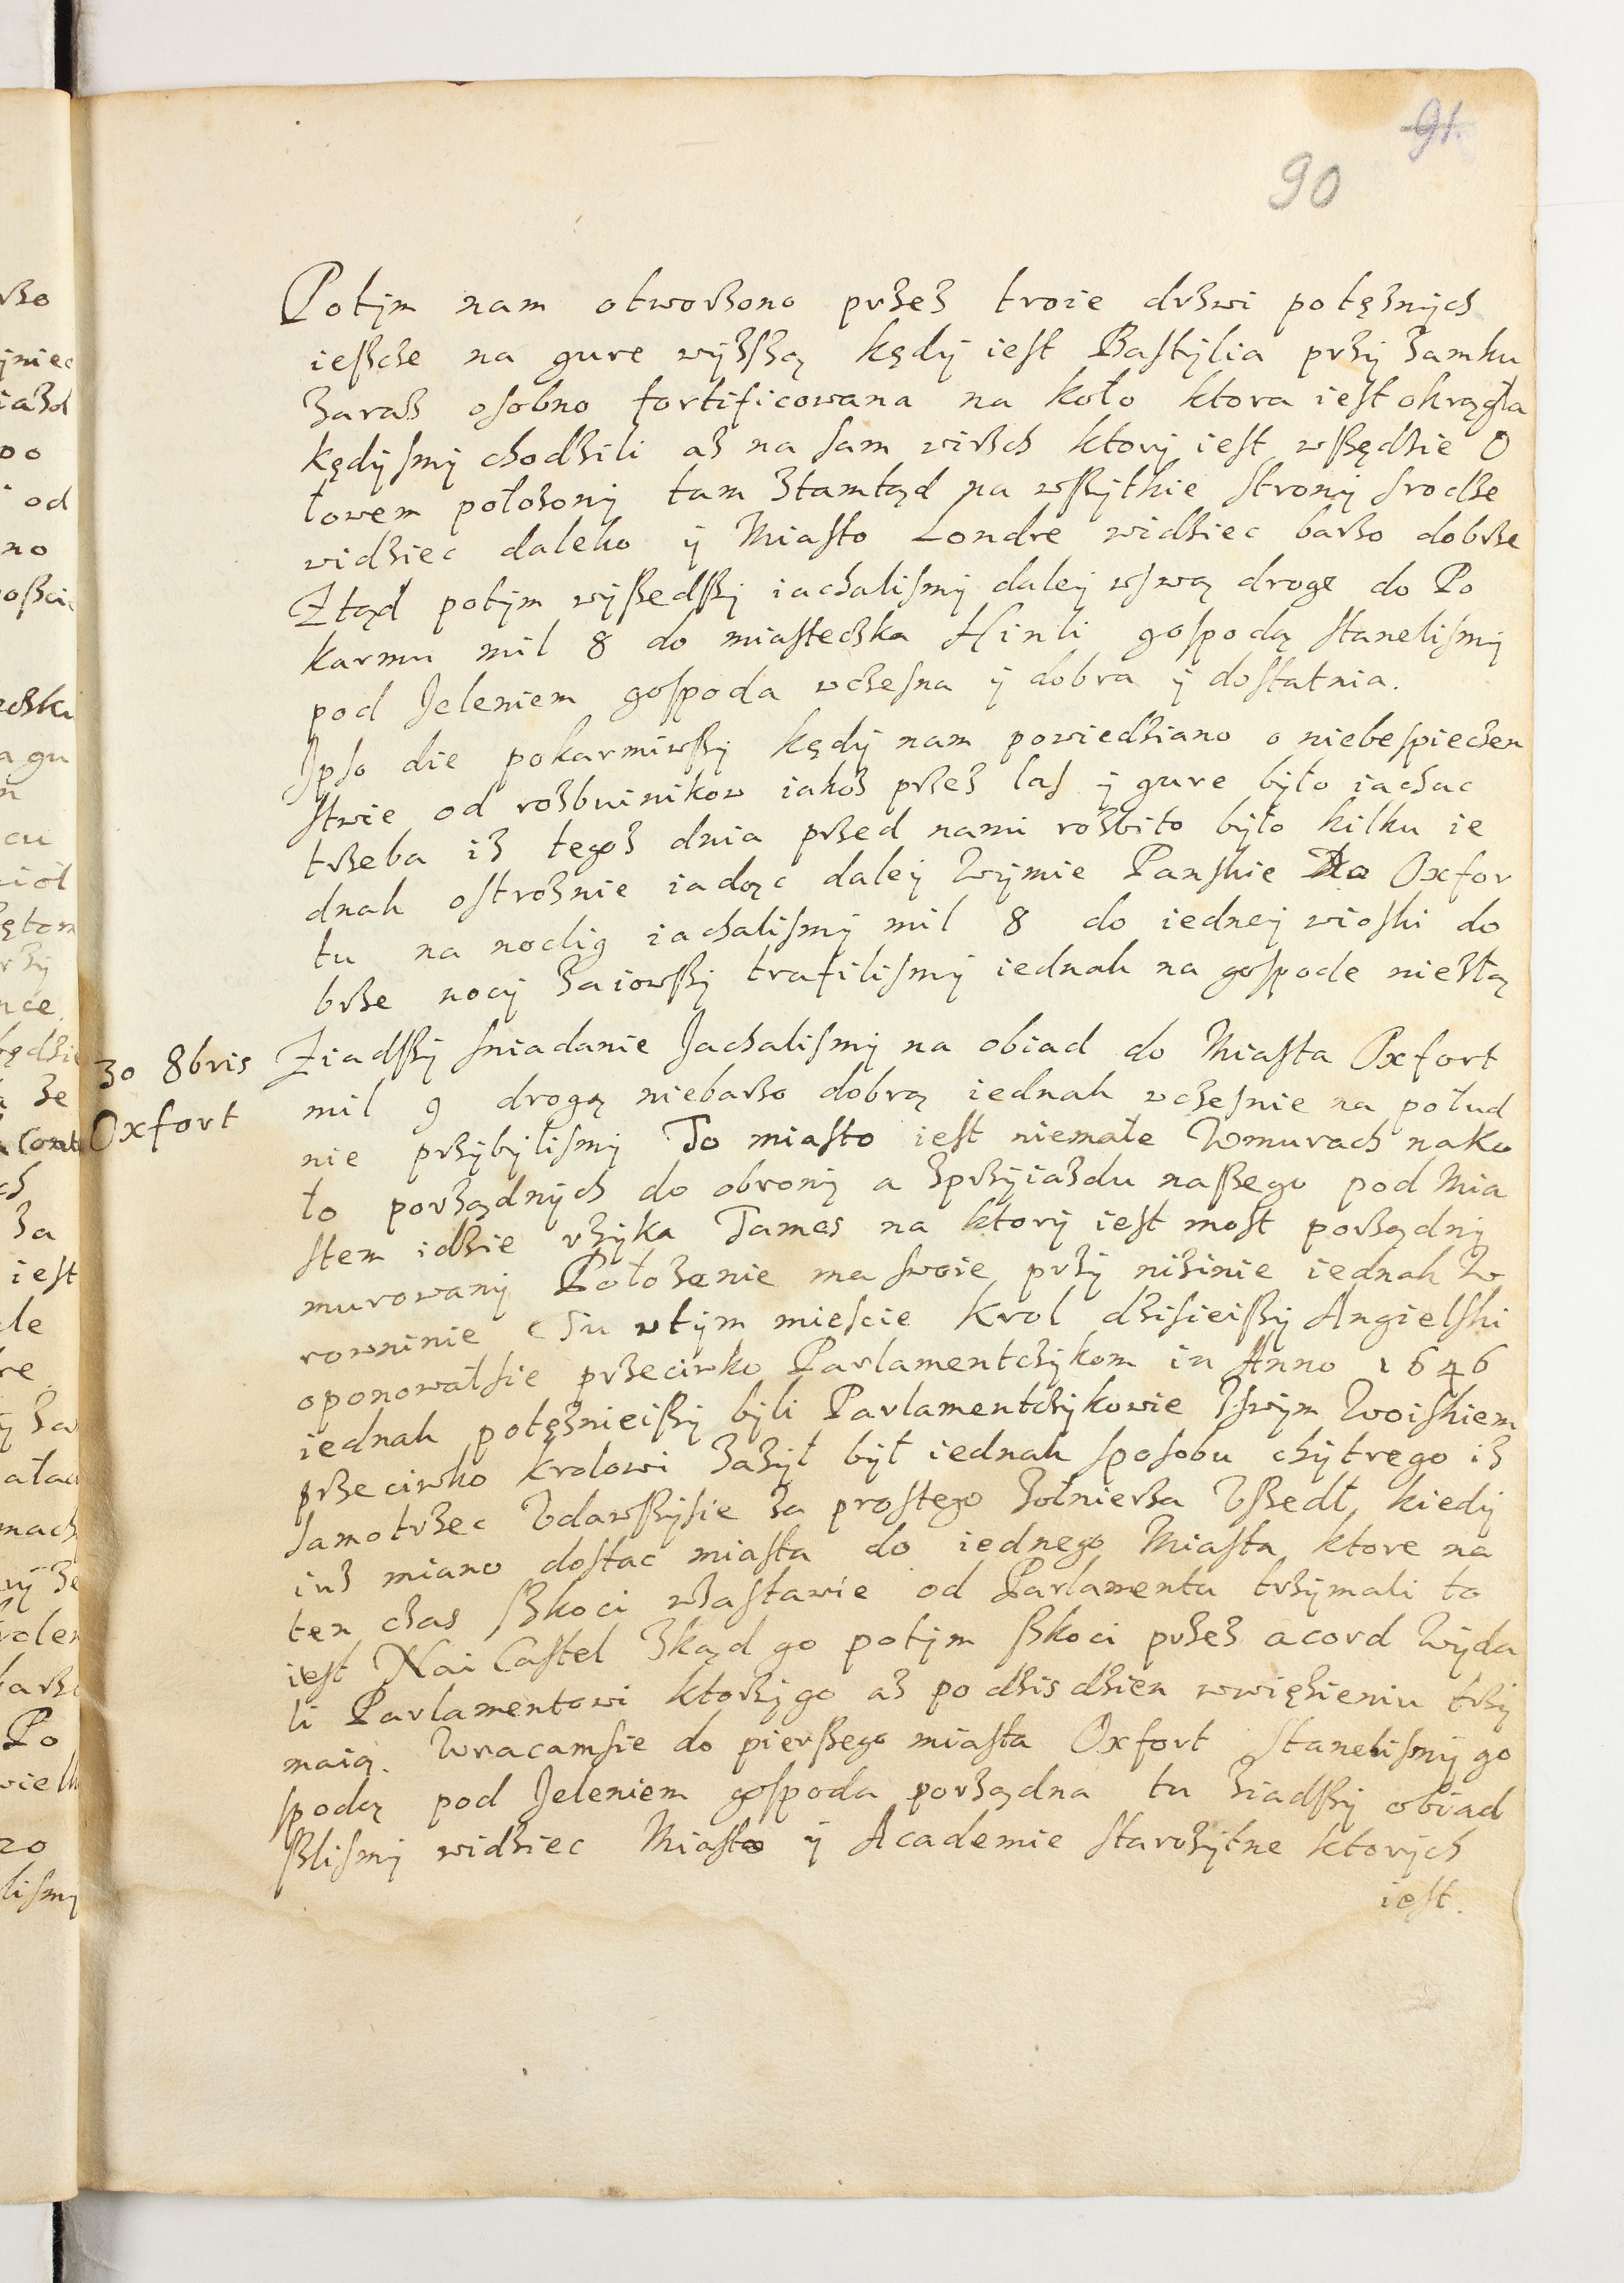 91.
90
Potym nam otworzono przez troie drzwi potęznych
ieszcze na gure wyzszą kędy iest Bastylia przy Zamku
Zaraz osobno fortificowana na koło ktora iest okrągła
kędysmy chodzili az na sam wirzch ktory iest wszędzie O
łowem połozony tam Ztamtąd na wszytkie strony srodze
widziec daleko y Miasto Londre widziec barzo dobrze
Ztąd potym wyszedszy iachalismy daley wswą droge do Po
karmu mil 8 do miasteczka Hinli gospodą stanelismy
pod Jeleniem gospoda wczesna y dobra y dostatnia.
Ipso die pokarmiwszy kędy nam powiedziano o niebespieczen
stwie od rozbuinikow iakoz przez las y gure było iachac
trzeba iz tegoz dnia przed nami rozbito było kilku ie
dnak ostroznie iadąc daley Wymie Panskie Ka Oxfor
tu na noclig iachalismy mil 8 do iedney wioski do
brze nocy Zaiowszy trafilismy iednak na gospode niezłą
30 8bris Ziadszy sniadanie Jachalismy na obiad do Miasta Oxfort
Oxfort mil 9 drogą niebarzo dobrą iednak wczesnie na połud
nie przybylismy To miasto iest niemałe Wmurach nako
ło porządnych do obrony a zprzyiazdu naszego pod Mia
stem idzie rzyka Tames na ktory iest most porządny
murowany Połozenie ma swoie przy nizinie iednak W
rowninie Tu wtym miescie Krol dzisieiszy Angielski
oponowałsie przeciwko Parlamentczykom in Anno 1646
iednak potęznieiszy byli Parlamentczykowie Zswym Woiskiem
przeciwko Krolowi Zazył był iednak sposobu chytrego iz
samotrzec Vdawszysie za prostego Zołnierza Vszedł kiedy
iuz miano dostac miasta do iednego Miasta ktore na
ten czas Szkoci wzastawie od Parlamentu trzymali to
iest Nai Castel Zkąd go potym Szkoci przez acord Wyda
li Parlamentowi ktorzygo az podzis dzien wwięzieniu trzy
maią. Wracamsie do pierszego miasta Oxfort Stanelismy go
spodą pod Jeleniem gospoda porządna tu Ziadszy obiad
szlismy widziec Miasto y Academie starozytne ktorych
iest.